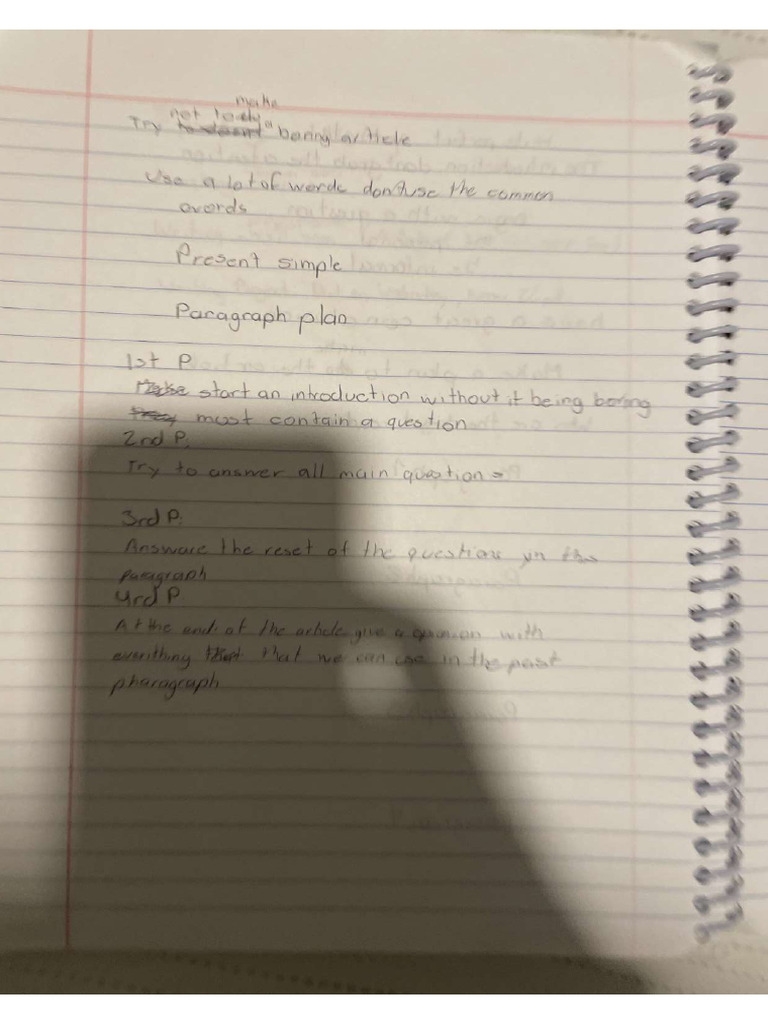 make
not to a
Try boring article
Use a lot of words don't use the common
words
Present simple
Paragraph plan
1st P
start an introduction without it being boring
must contain a question
2nd P.
Try to answer all main question
3rd P.
Answare the reset of the questions in this
paragraph
4rd P.
At the end of the article give a opinion with
everithing that we can use in the past
pharagraph